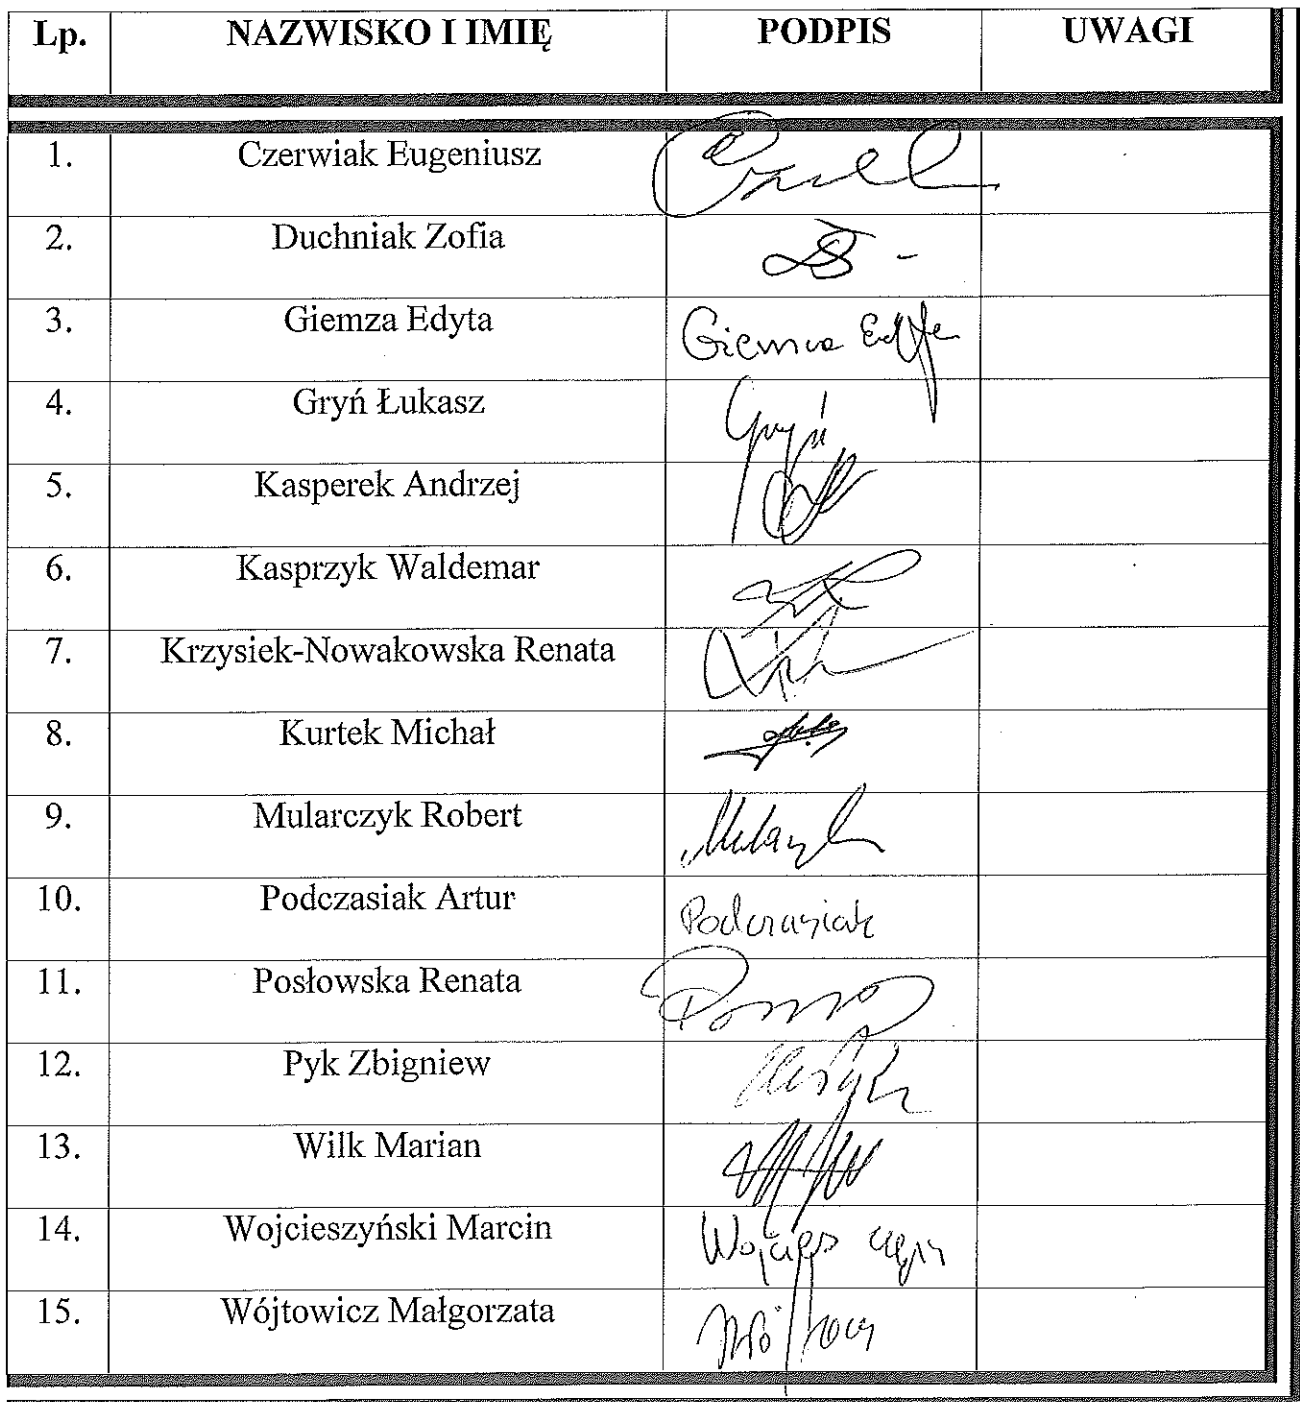 Lp. NAZWISKO I IMIĘ PODPIS UWAGI
1. Czerwiak Eugeniusz
2. Duchniak Zofia
3. Giemza Edyta Giemza Edyta
4. Gryń Łukasz Gryń
5. Kasperek Andrzej
6. Kasprzyk Waldemar
7. Krzysiek-Nowakowska Renata
8. Kurtek Michał
9. Mularczyk Robert
10. Podczasiak Artur Podczasiak
11. Posłowska Renata
12. Pyk Zbigniew
13. Wilk Marian
14. Wojcieszyński Marcin
15. Wójtowicz Małgorzata